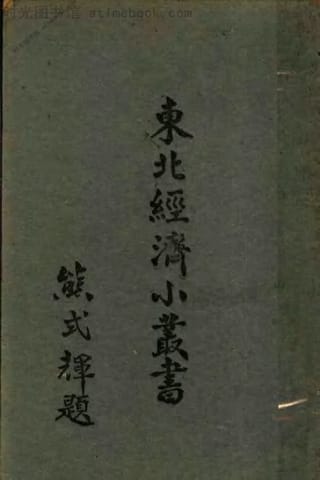 时光图书馆 atimebook.com
東北經濟小叢書
熊式輝題